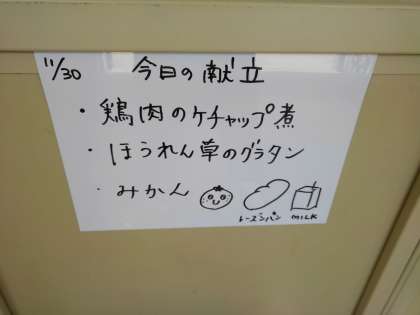 11/30 今日の献立
・鶏肉のケチャップ煮
・ほうれん草のグラタン
・みかん
レーズンパン MILK